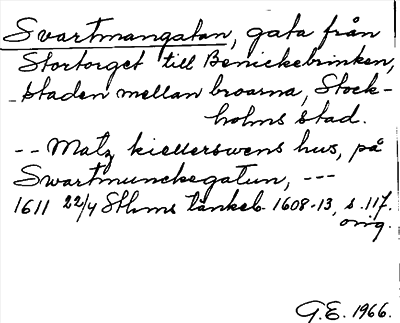 Svartmangatan, gata från
Stortorget till Benickebrinken,
staden mellan broarna, Stock-
holms stad.
-- Matz kiellerswens hus, på
Swartmunckegatun, ---
1611 22/4 Sthms tänkeb. 1608-13, s. 117.
orig.
G.E. 1966.